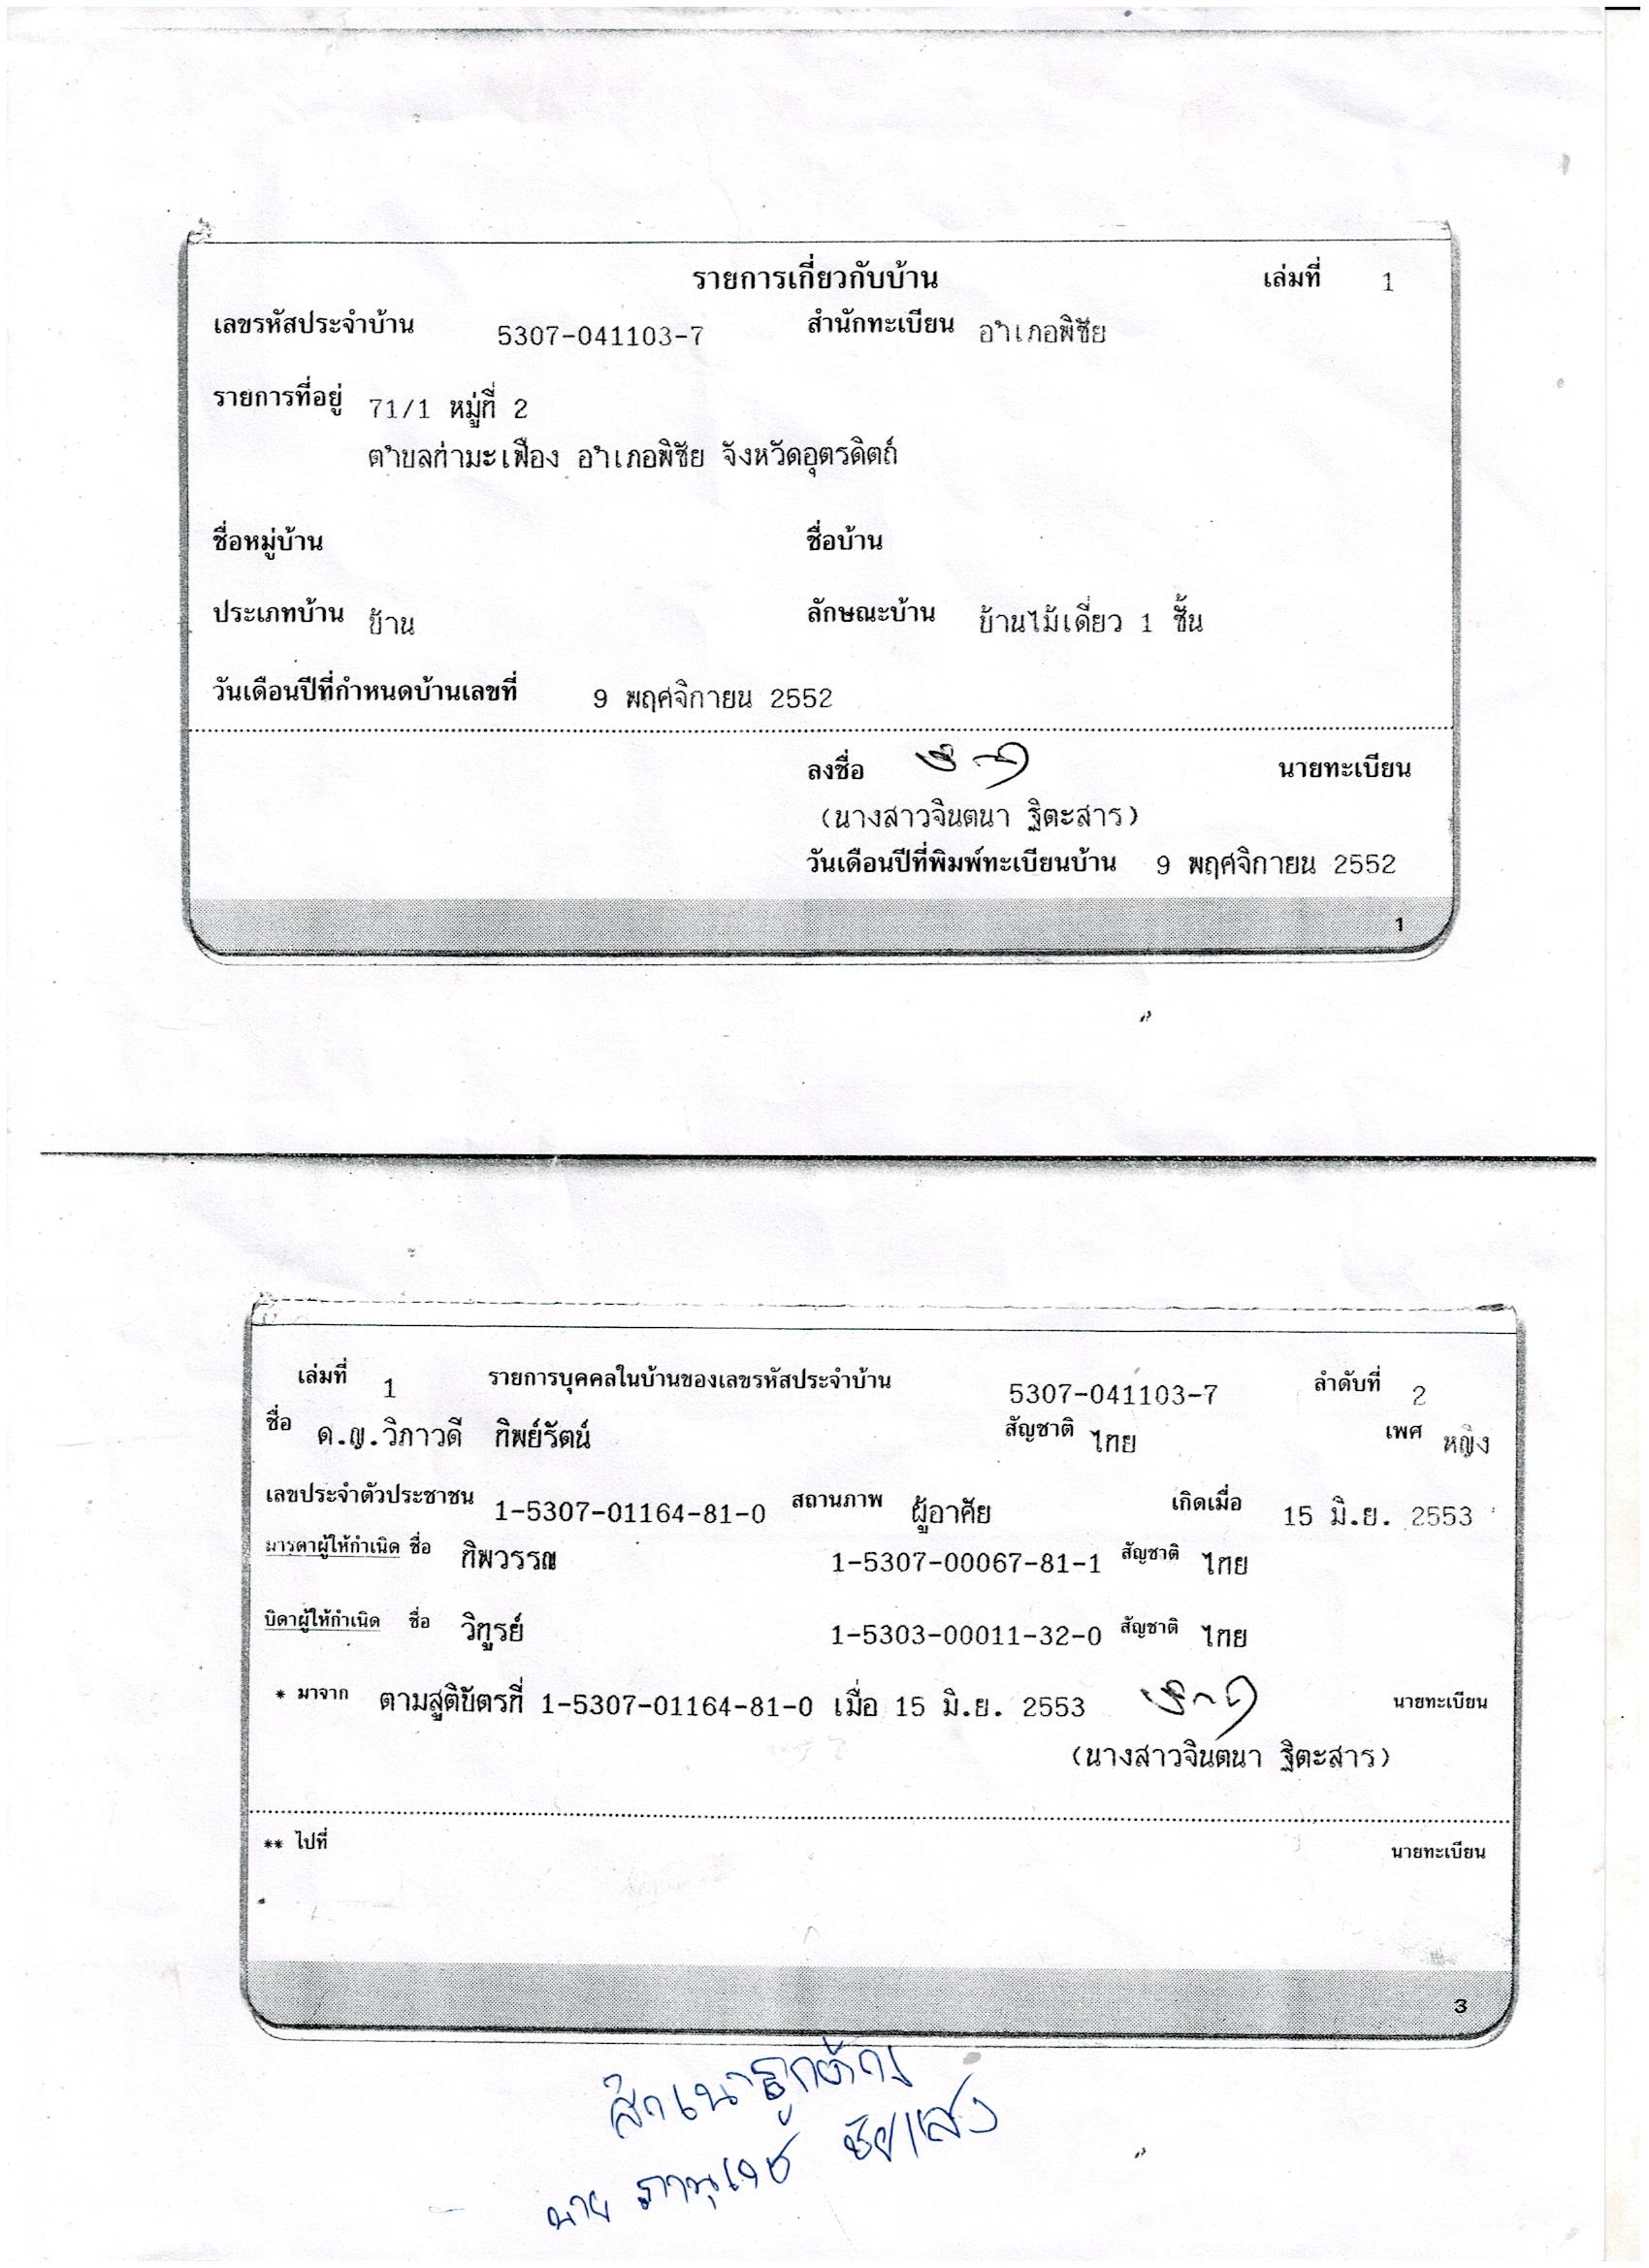 รายการเกี่ยวกับบ้าน เล่มที่ 1
เลขรหัสประจำบ้าน 5307-041103-7 สำนักทะเบียน อำเภอพิชัย
รายการที่อยู่ 71/1 หมู่ที่ 2
ตำบลท่ามะเฟือง อำเภอพิชัย จังหวัดอุตรดิตถ์
ชื่อหมู่บ้าน ชื่อบ้าน
ประเภทบ้าน บ้าน ลักษณะบ้าน บ้านไม้เดี่ยว 1 ชั้น
วันเดือนปีที่กำหนดบ้านเลขที่ 9 พฤศจิกายน 2552
ลงชื่อ นายทะเบียน
(นางสาวจินตนา ฐิตะสาร)
วันเดือนปีที่พิมพ์ทะเบียนบ้าน 9 พฤศจิกายน 2552
1
เล่มที่ 1 รายการบุคคลในบ้านของเลขรหัสประจำบ้าน 5307-041103-7 ลำดับที่ 2
ชื่อ ด.ญ.วิภาวดี ทิพย์รัตน์ สัญชาติ ไทย เพศ หญิง
เลขประจำตัวประชาชน 1-5307-01164-81-0 สถานภาพ ผู้อาศัย เกิดเมื่อ 15 มิ.ย. 2553
มารดาผู้ให้กำเนิด ชื่อ ทิพวรรณ 1-5307-00067-81-1 สัญชาติ ไทย
บิดาผู้ให้กำเนิด ชื่อ วิทูรย์ 1-5303-00011-32-0 สัญชาติ ไทย
* มาจาก ตามสูติบัตรที่ 1-5307-01164-81-0 เมื่อ 15 มิ.ย. 2553 นายทะเบียน
(นางสาวจินตนา ฐิตะสาร)
** ไปที่ นายทะเบียน
3
สำเนาถูกต้อง
นาย ภานุเดช ชัยแสง